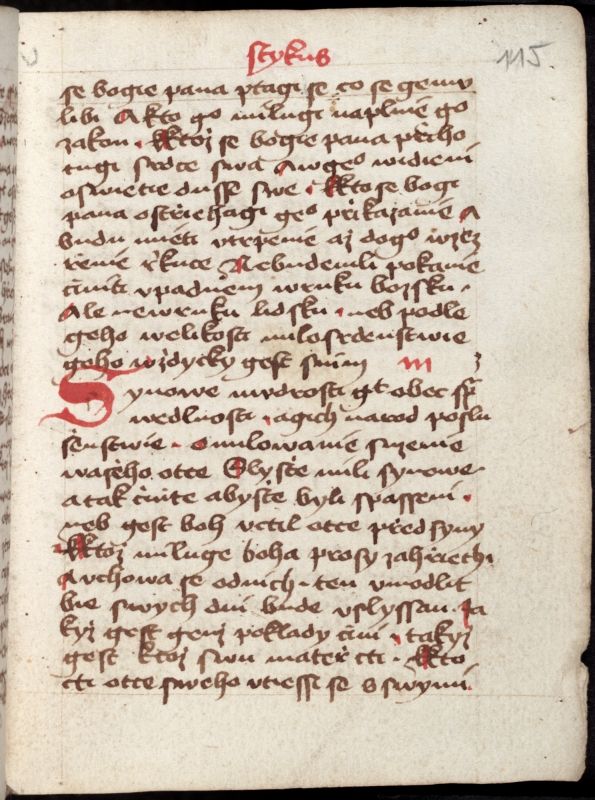 stykus
115.
se bogie pana ptagi se co se gemu
libi A kto go milugi naplnie go
zakon · Ktoz se bogie pana przicho
tugi srdce swa A w geo widieni
oswietie dusse swe · Kto se bogi
pana ostrziehagi geo przikazanie A
budu mieti vtrpenie az do go wzez
rzenie rzkuce Nebudemli pokanie
ciniti vpadnem w ruku bozsku ·
Ale ne w ruku lidsku · neb podle
geho welikosti milosrdenstwie
geho wzdycky gest s nim III
Synowe mudrosti gt obec sp
wedlnosti · a gich narod poslu
senstwie · o milowanie s uzenie
waseho otce Slyste mili synowe
a tak cinte abyste byli spasseni ·
neb gest boh vctil otce przed syny
Ktoz miluge boha prosy za hrziechi
A vchowa se od nich · ten v modlit
bie swych dni bude vslyssan · Ja
kyz gest genz poklady cini · takyz
gest ktoz swu materz cti · Kto
cti otce sweho vtiessi se s swymi